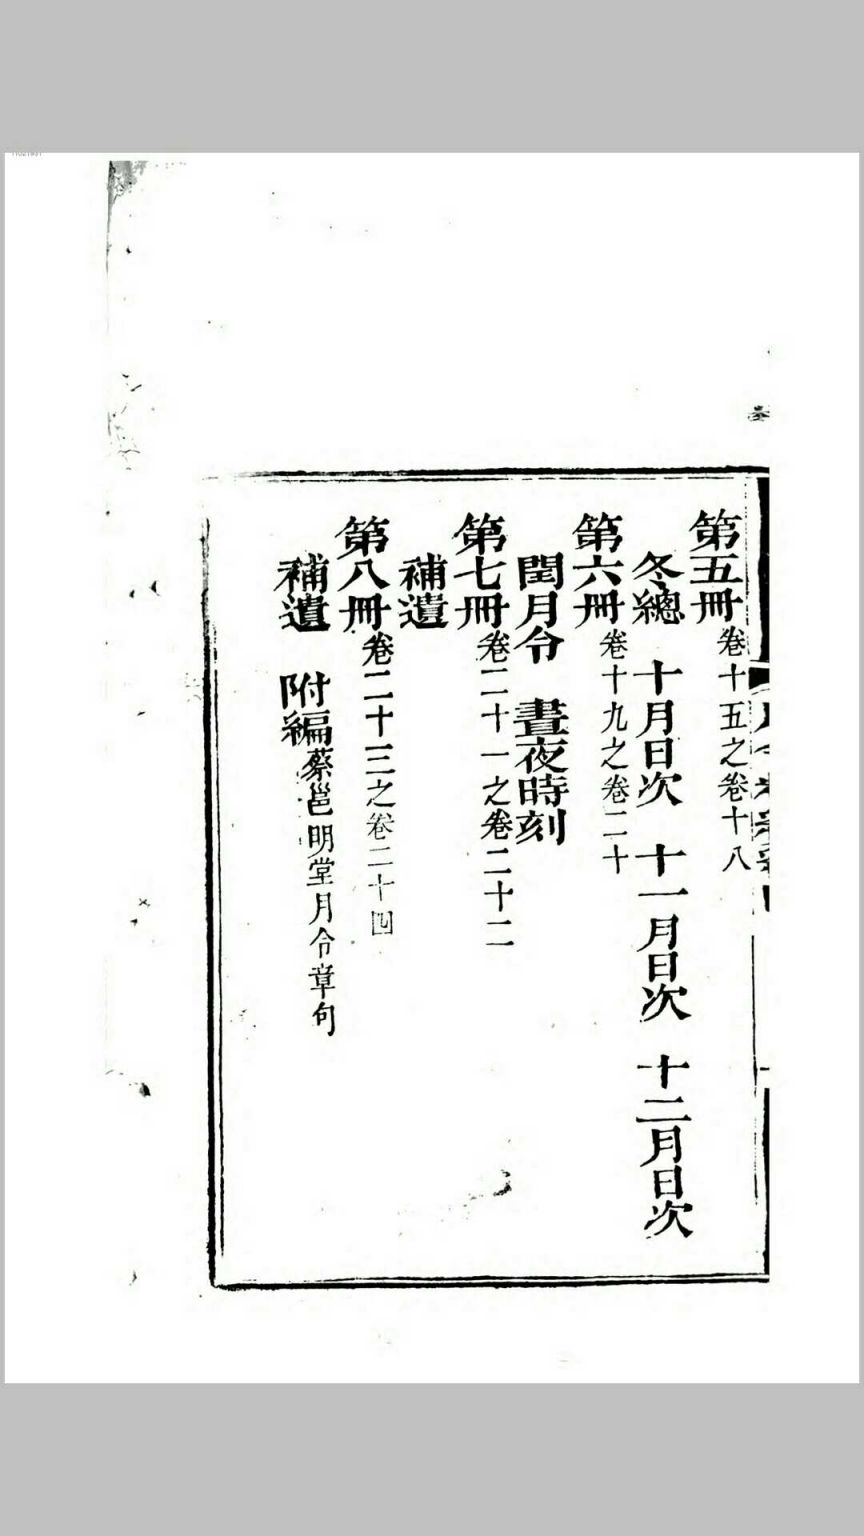 第五冊卷十五之卷十八
冬總　十月日次　十一月日次　十二月日次
第六冊卷十九之卷二十
閏月令　晝夜時刻
第七冊卷二十一之卷二十二
補遺
第八冊卷二十三之卷二十四
補遺　附編蔡邕明堂月令章句